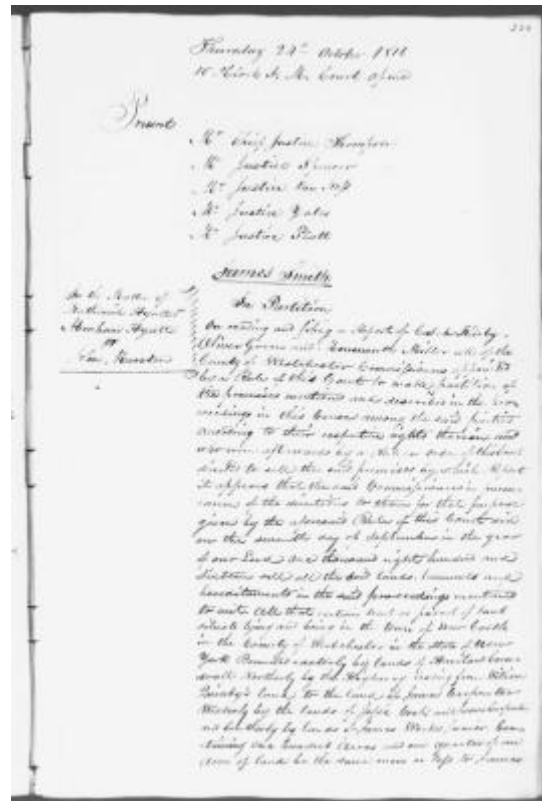 Thursday 24th October 1816
10 O'Clock A. M. Court opened
Present
Mr Chief Justice Thompson
Mr Justice Spencer
Mr Justice Van Ness
Mr Justice Yates
Mr Justice Platt
James Smith
In the Matter of
Nathaniel Hyatt
Abraham Hyatt
vs
John
In Partition
On reading and filing a Report of Kirby
Oliver Green and Miller all of the
County of Westchester Commissioners appointed
by a Rule of this Court to make partition of
the premises mentioned and described in the pro
ceedings in this Cause among the said parties
according to their respective rights therein and
who were afterwards by a Rule or order of this Court
directed to sell the said premises by which Report
it appears that the said Commissioners in pursu
ance of the directions to them for that purpose
given by the aforesaid Rules of this Court did
on the seventh day of September in the year
of our Lord one thousand eight hundred and
sixteen sell all the said lands tenements and
hereditaments in the said proceedings mentioned
to wit All that certain tract or parcel of land
situate lying and being in the Town of New Castle
in the County of Westchester in the State of New
York Bounded easterly by lands of
Northerly by the Highway leading from
land to the land of James Carpenter
Westerly by the lands of Jesse and
and Southerly by lands of James junior Con
taining one hundred Acres and one quarter of an
Acre of land be the same more or less to James